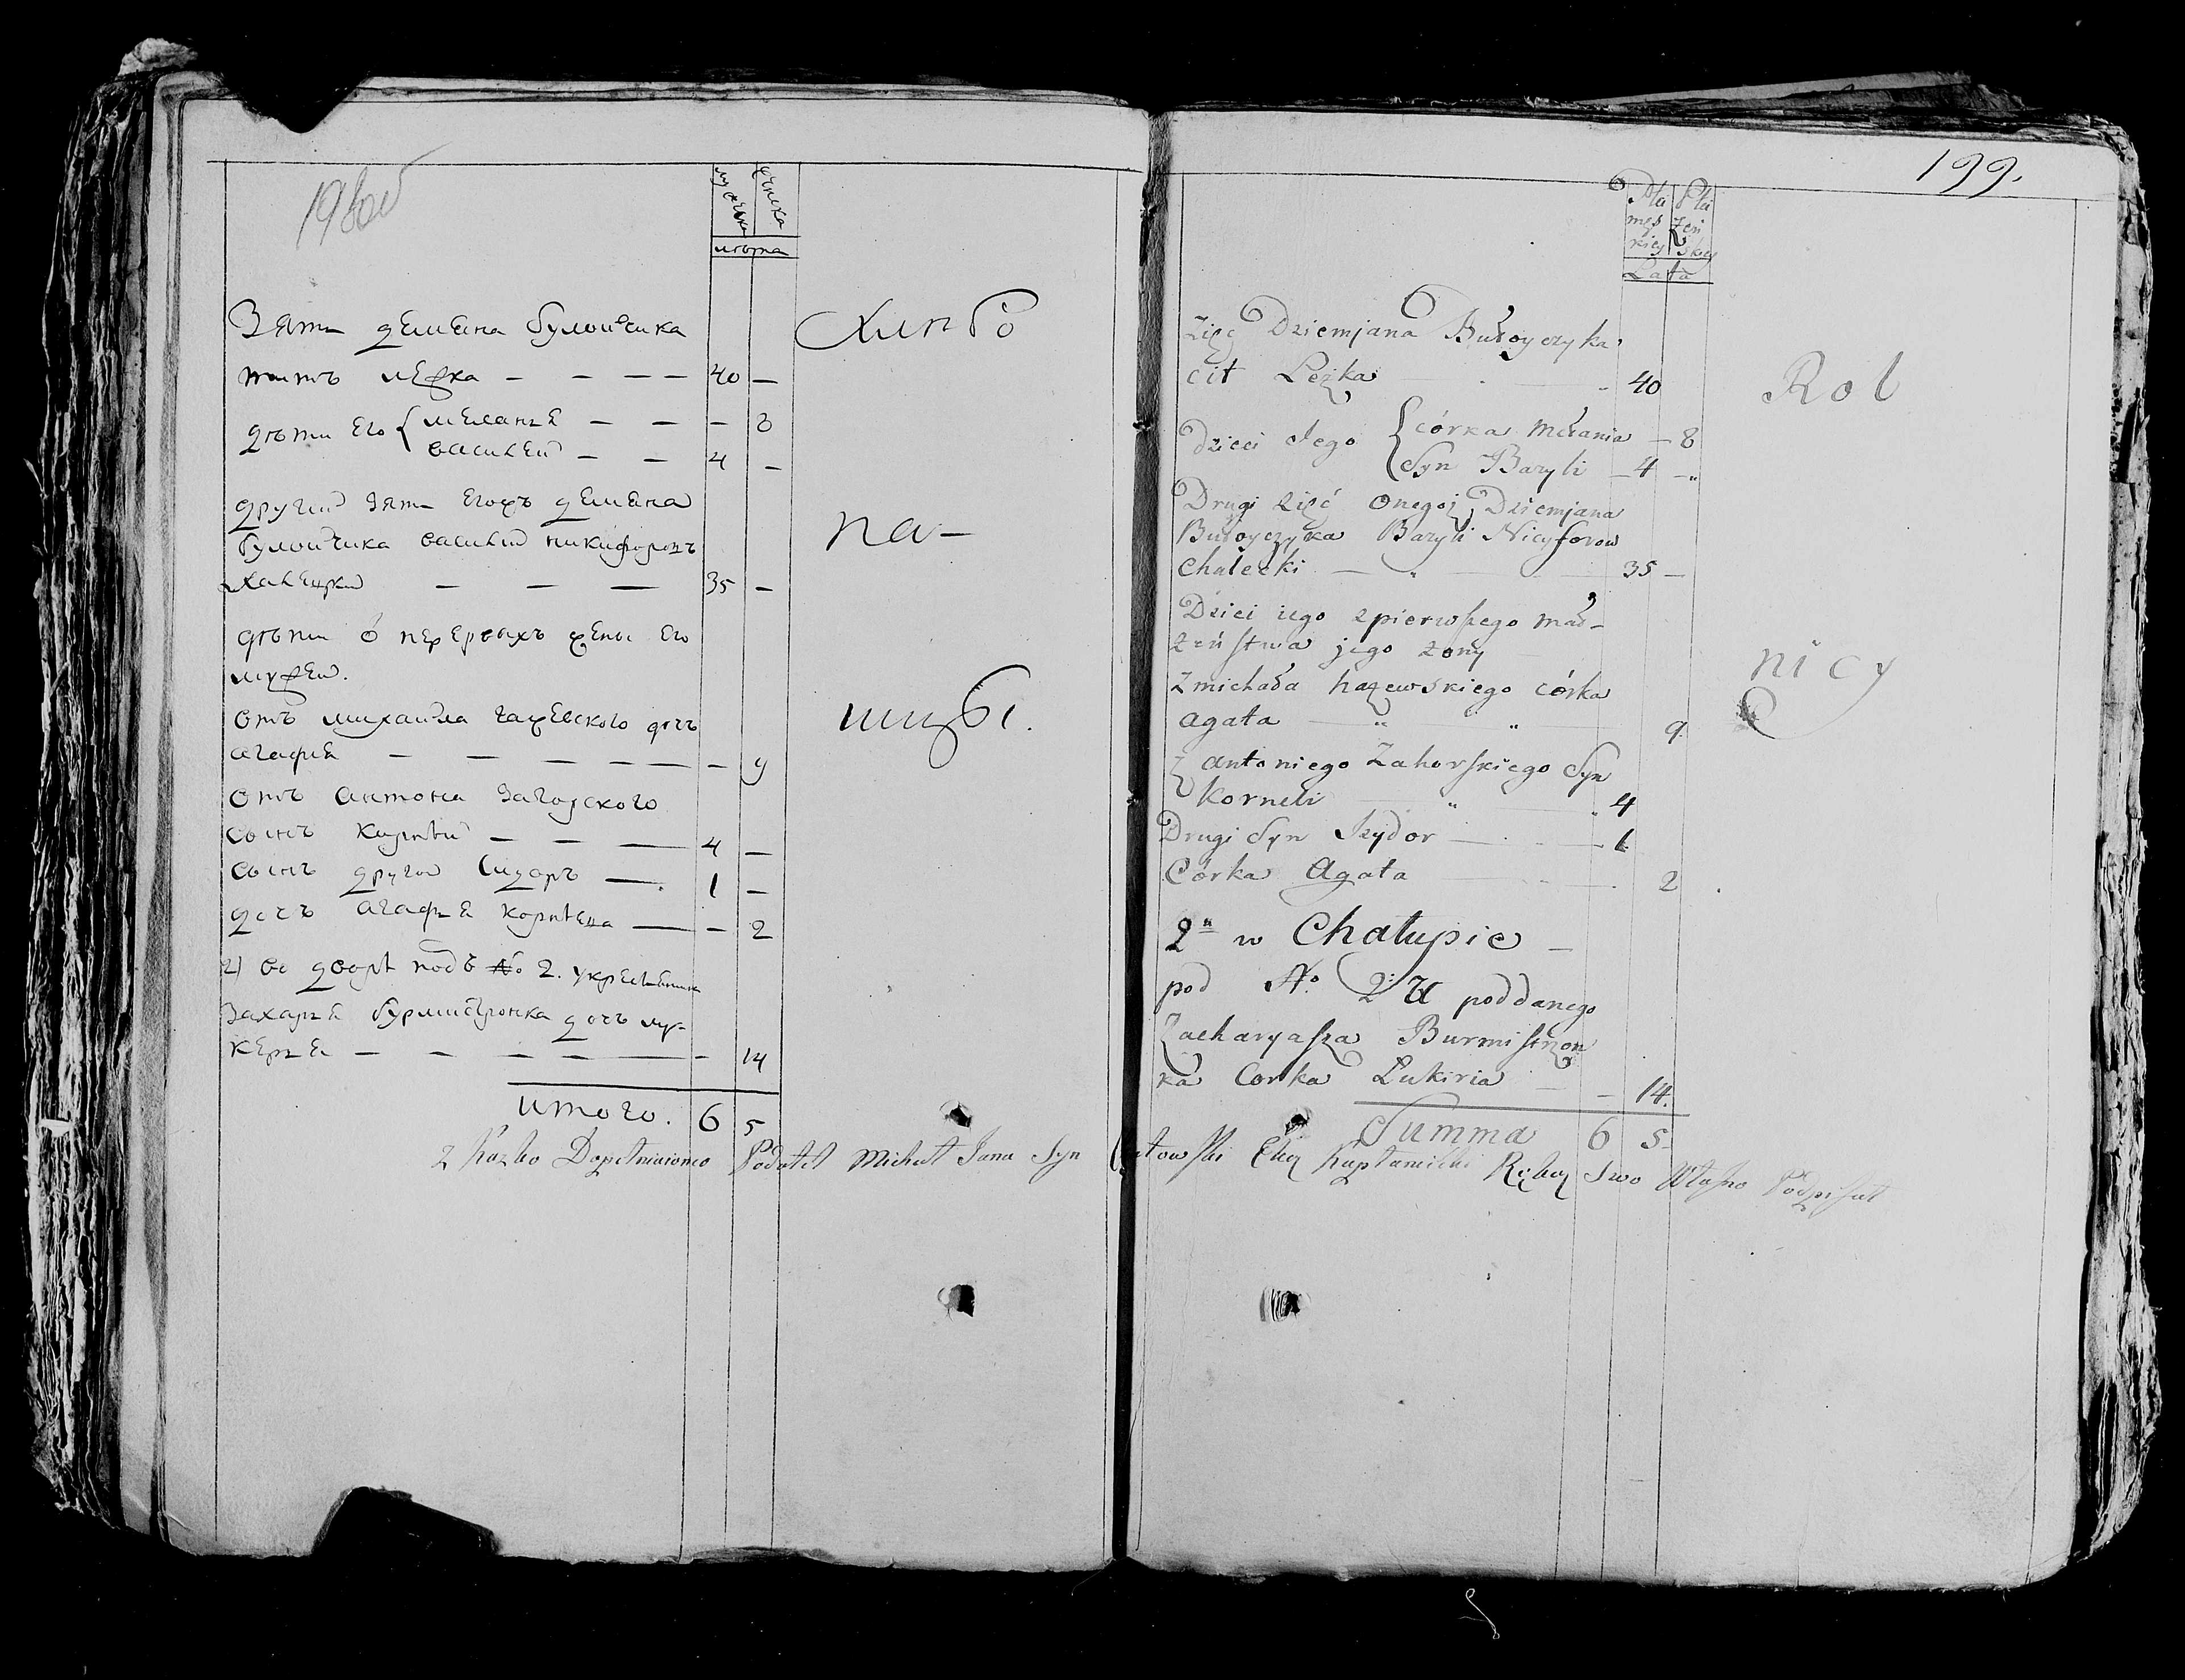 198об
мужеска
женска
лѣта
Зять демяна булойчика
титъ лежка — — — — 40 —
дѣти его { мелания — — — 8
василей — — 4 —
другий зять егожъ демяна
булойчика василий никифоровъ
халецкий — — — 35 —
дѣти
жены его
мужей.
отъ михайла гажевского дочь
агафия — — — — — — 9
отъ антона загорского
сынъ корнѣй — — — 4 —
сынъ другой сидоръ — 1 —
дочь агафия корнѣева — — 2
2) во дворѣ подъ № 2. у крестьянина
захария бурмистронка дочь лу-
керия — — — — — — 14
итого. 6 5
хлѣбо
па-
шцы.
199.
Płci męskiey
Płci żeńskiey
Lata
Zięć Dziemjana Bułoyczyka
Cit Leżka — 40
Dzieci Jego { córka Mełania — 8
Syn Bazyli — 4 — „
Drugi zięć onegoż Dziemjana
Bułoyczyka Bazyli Nicyforow
Chalecki — „ — 35 —
Dzieci iego z pierwszego mał-
żeństwa jego żony
z michała hażewskiego córka
agata — „ — „ 9.
z antoniego Zahorskiego Syn
Korneli — „ — 4
Drugi Syn Izydor — 1
Córka Agata — 2
2° w Chałupie —
pod N° 2: U poddanego
Zacharyasza Burmistron
ka Corka Łukiria — 14.
Summa 6 5
Rol
nicy
Podał Michał Jana Syn
Ręką Swo Własno Podpisał